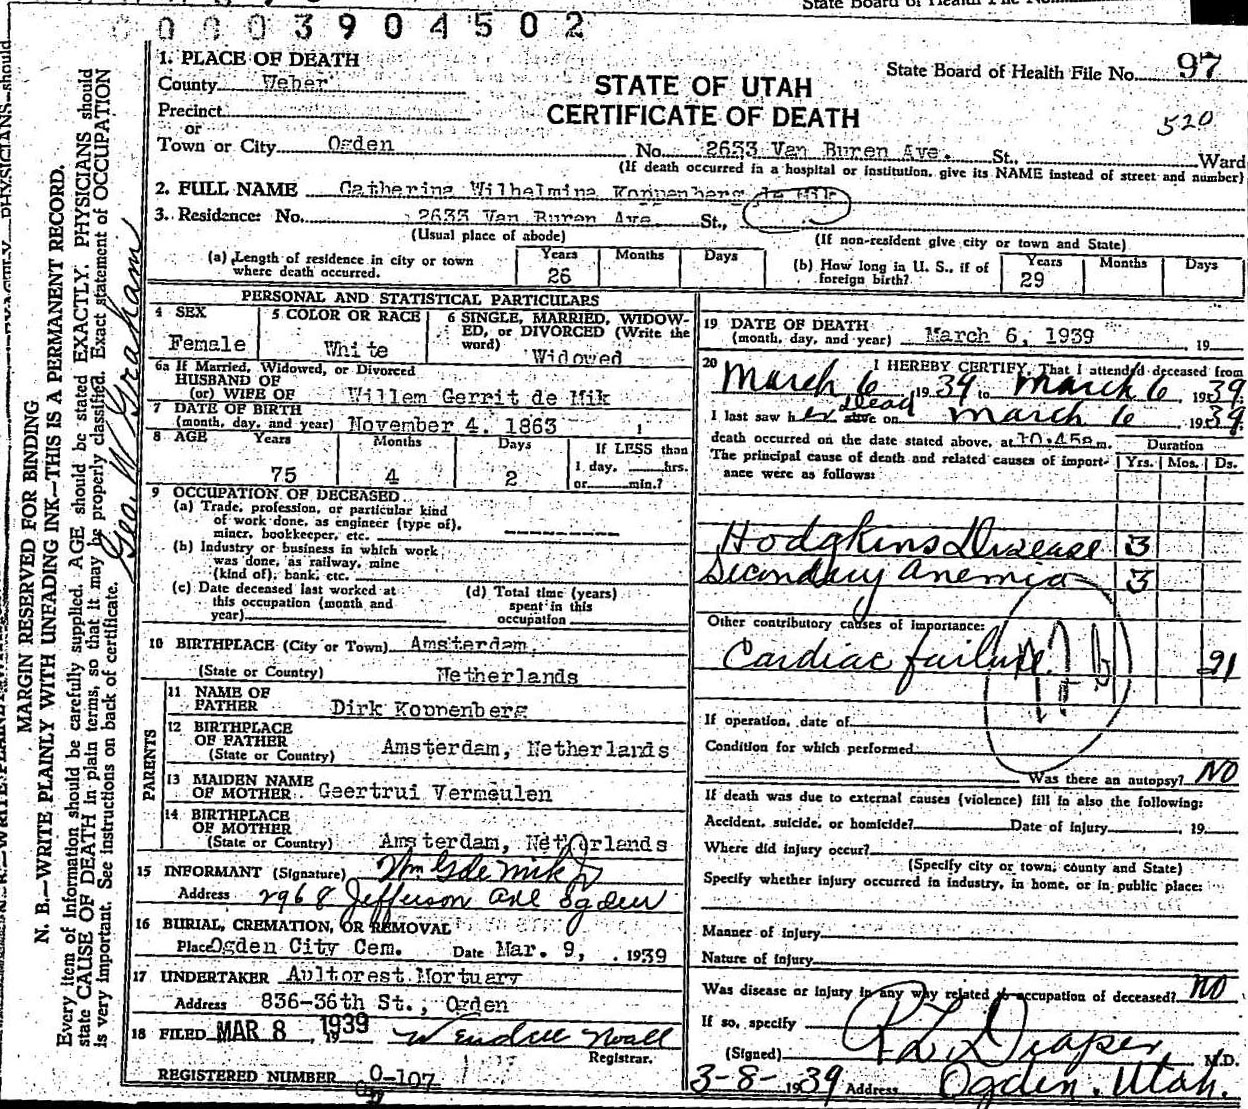 0003904502
State Board of Health File No.
1. PLACE OF DEATH
County Weber
Precinct
or
Town or City Ogden No. 2633 Van Buren Ave. St., Ward
(If death occurred in a hospital or institution, give its NAME instead of street and number)
STATE OF UTAH
CERTIFICATE OF DEATH
State Board of Health File No. 97
520
2. FULL NAME Catherina Wilhelmina Koppenberg de Mik
3. Residence: No. 2633 Van Buren Ave. St.,
(Usual place of abode) (If non-resident give city or town and State)
(a) Length of residence in city or town where death occurred. Years 26 Months Days
(b) How long in U. S., if of foreign birth? Years 29 Months Days
PERSONAL AND STATISTICAL PARTICULARS
4 SEX Female
5 COLOR OR RACE White
6 SINGLE, MARRIED, WIDOWED, or DIVORCED (Write the word) Widowed
6a If Married, Widowed, or Divorced
HUSBAND OF
(or) WIFE OF Willem Gerrit de Mik
7 DATE OF BIRTH
(month, day, and year) November 4, 1863
8 AGE Years 75 Months 4 Days 2
If LESS than
1 day, hrs.
or min.?
9 OCCUPATION OF DECEASED
(a) Trade, profession, or particular kind
of work done, as engineer (type of),
miner, bookkeeper, etc. ---------
(b) Industry or business in which work
was done, as railway, mine
(kind of), bank, etc.
(c) Date deceased last worked at
this occupation (month and
year)
(d) Total time (years)
spent in this
occupation
10 BIRTHPLACE (City or Town) Amsterdam,
(State or Country) Netherlands
PARENTS
11 NAME OF
FATHER Dirk Koppenberg
12 BIRTHPLACE
OF FATHER
(State or Country) Amsterdam, Netherlands
13 MAIDEN NAME
OF MOTHER Geertrui Vermeulen
14 BIRTHPLACE
OF MOTHER
(State or Country) Amsterdam, Netherlands
15 INFORMANT (Signature) Wm G de Mik Jr
Address 2968 Jefferson Ave Ogden
16 BURIAL, CREMATION, OR REMOVAL
Place Ogden City Cem. Date Mar. 9, , 1939
17 UNDERTAKER Aultorest Mortuary
Address 836-36th St., Ogden
18 FILED MAR 8 1939, 19
Registrar.
REGISTERED NUMBER O-107
19 DATE OF DEATH
(month, day, and year) March 6, 1939 , 19
20 I HEREBY CERTIFY, That I attended deceased from
March 6 1939 to March 6, 1939.
I last saw her alive Dead on March 6, 1939.
death occurred on the date stated above, at 10:45 m.
The principal cause of death and related causes of importance were as follows:
Duration
Yrs. Mos. Ds.
Hodgkins Disease 3
Secondary anemia 3
Other contributory causes of importance:
Cardiac failure 21
If operation, date of
Condition for which performed
Was there an autopsy? NO
If death was due to external causes (violence) fill in also the following:
Accident, suicide, or homicide? Date of injury , 19
Where did injury occur?
(Specify city or town, county and State)
Specify whether injury occurred in industry, in home, or in public place:
Manner of Injury
Nature of Injury
Was disease or injury in any way related to occupation of deceased? NO
If so, specify
(Signed) R L Draper, M.D.
3-8-1939 Address Ogden, Utah.
MARGIN RESERVED FOR BINDING
N. B.—WRITE PLAINLY WITH UNFADING INK—THIS IS A PERMANENT RECORD.
Every item of information should be carefully supplied. AGE should be stated EXACTLY. PHYSICIANS should
state CAUSE OF DEATH in plain terms, so that it may be properly classified. Exact statement of OCCUPATION
is very important. See instructions on back of certificate.
Geo. W Graham